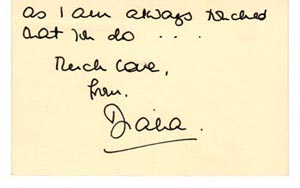 as I am always touched
that you do . . .
Much love,
from.
Diana.